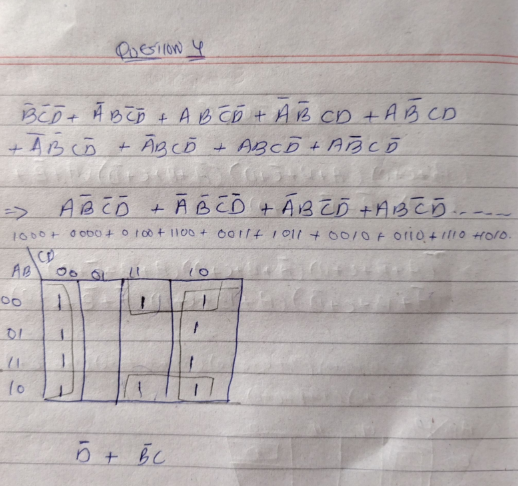 Question 4
B̄C̄D̄ + ĀBC̄D̄ + ABC̄D̄ + ĀB̄CD + AB̄CD
+ ĀB̄CD̄ + ĀBCD̄ + ABCD̄ + AB̄CD̄
=> AB̄C̄D̄ + ĀB̄C̄D̄ + ĀBC̄D̄ + ABC̄D̄ ------
1000 + 0000 + 0100 + 1100 + 0011 + 1011 + 0010 + 0110 + 1110 + 1010.
CD
AB 00 01 11 10
00 1 1 1
01 1 1
11 1 1
10 1 1 1
D̄ + B̄C